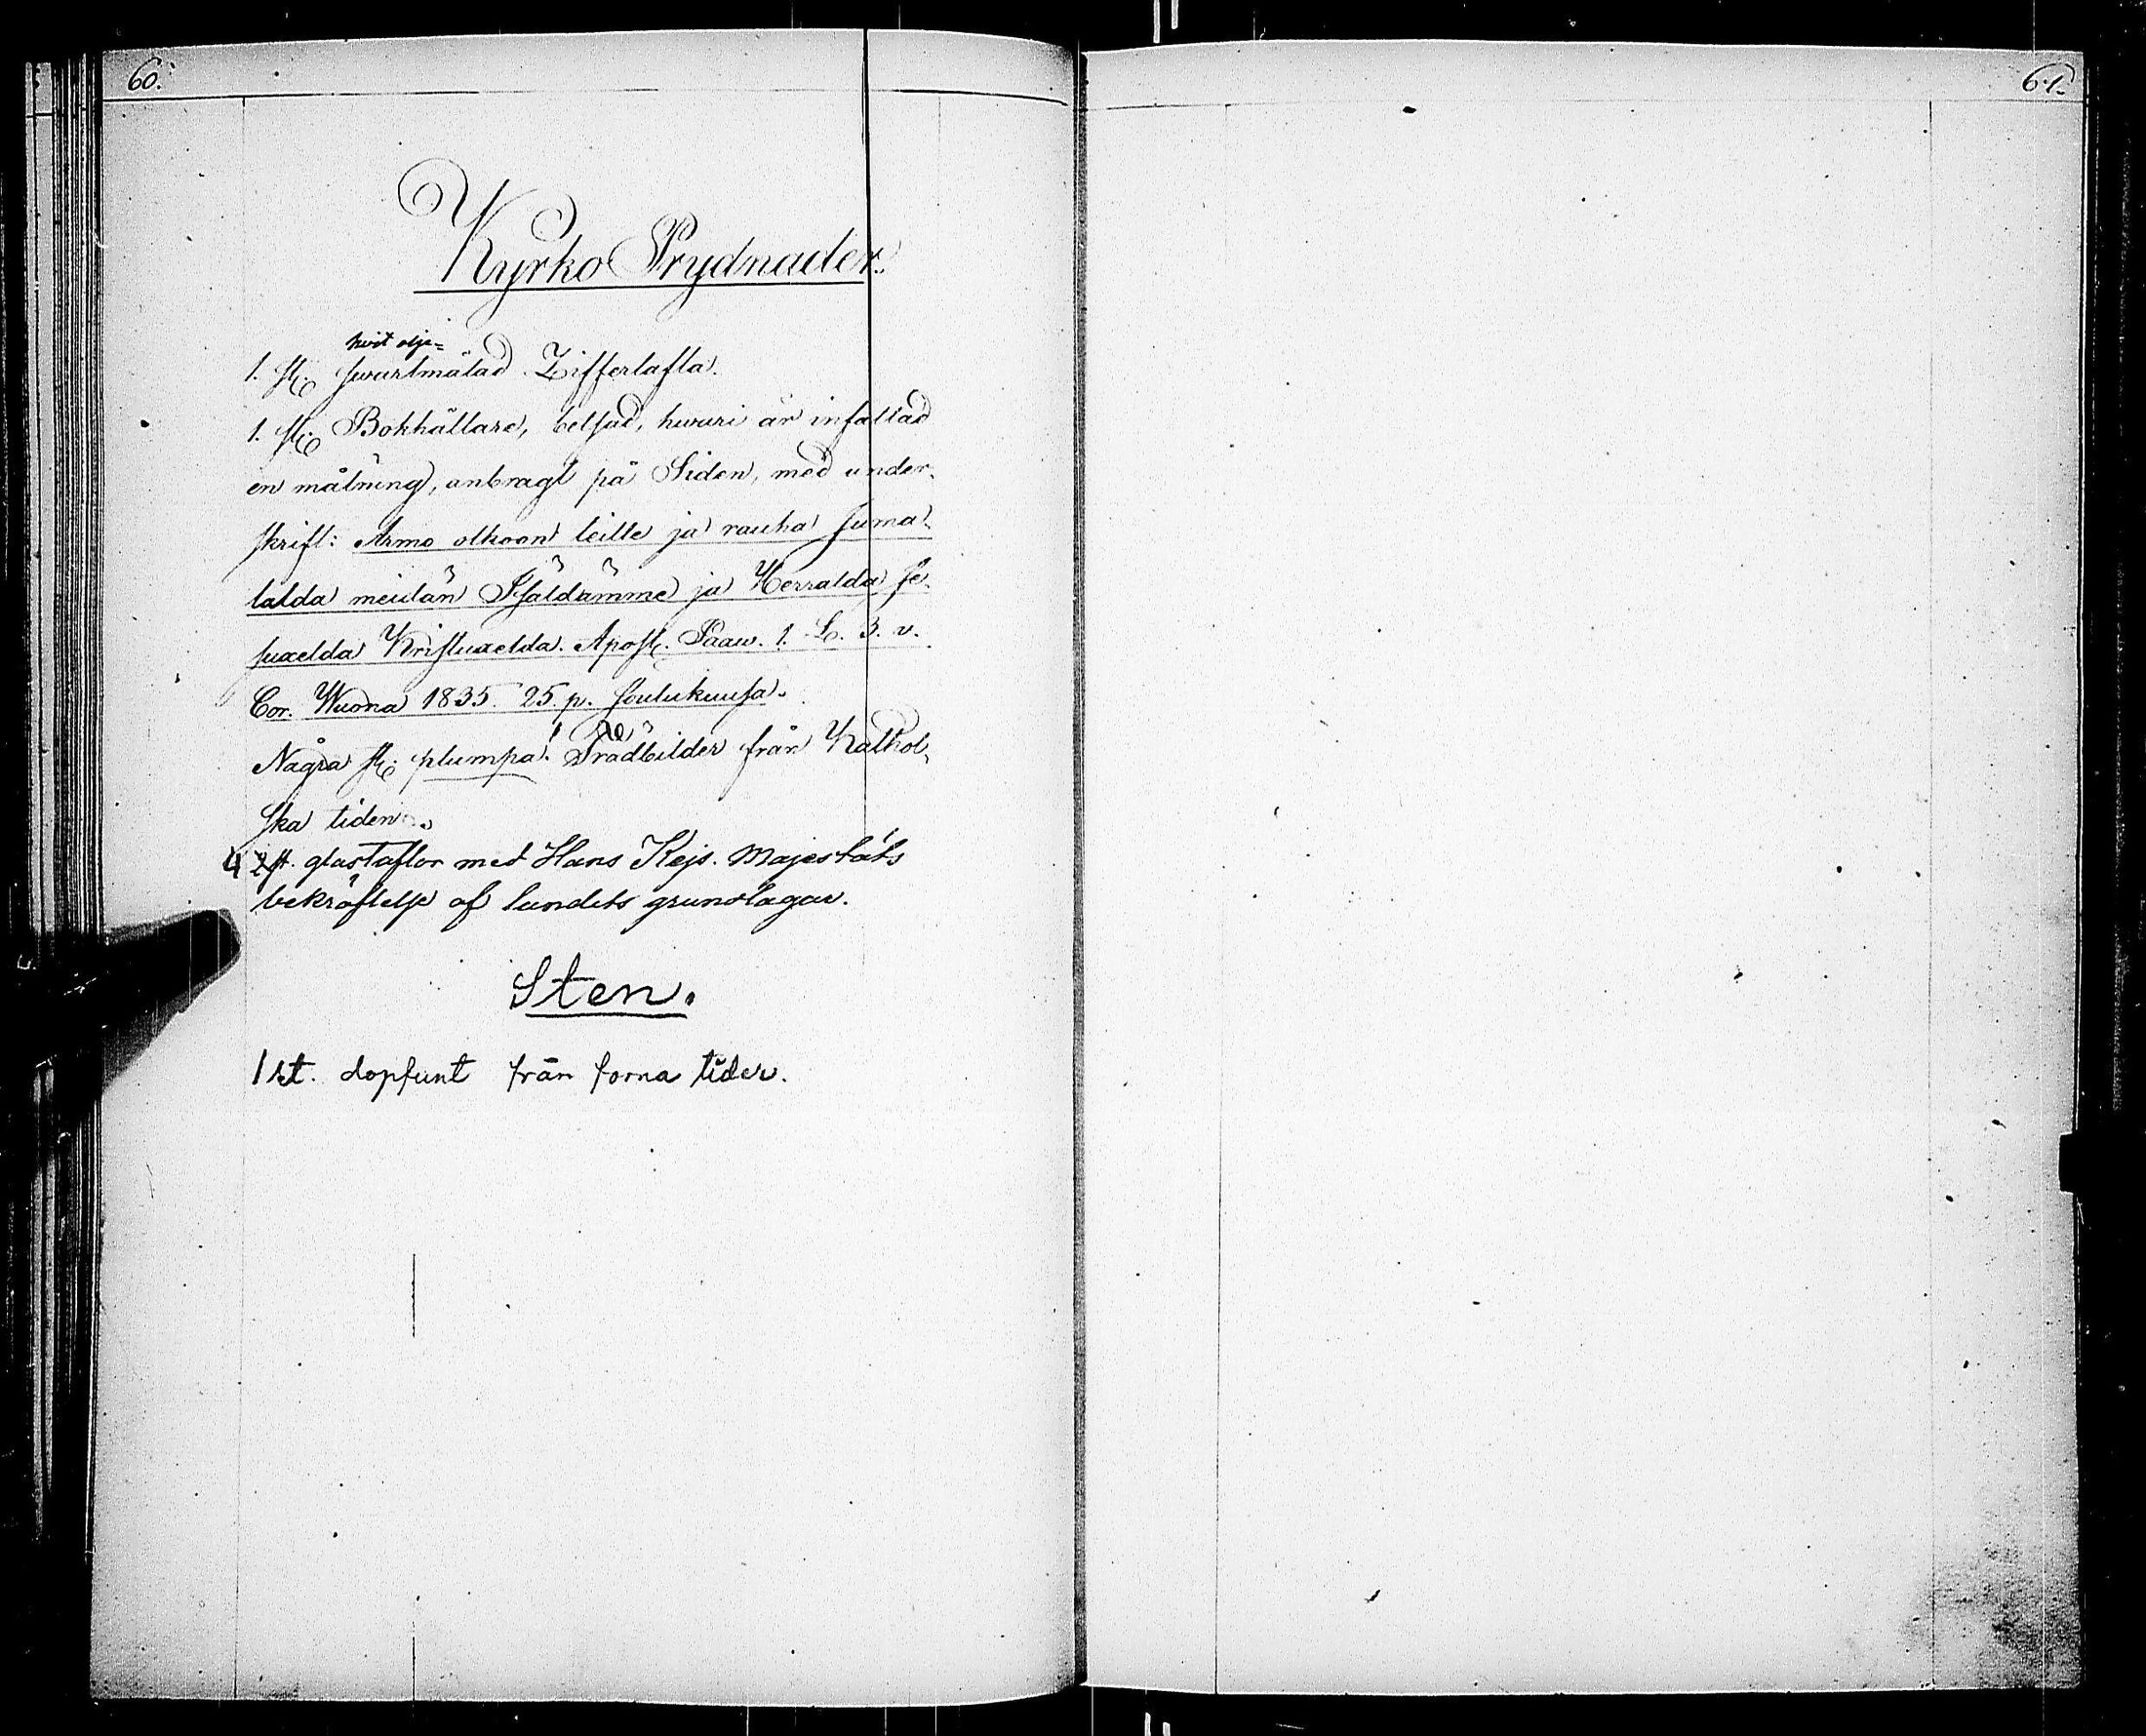 60.
61.
Kyrko Prydnader.
hvit olje-
1. st. swartmålad Zifferlafla.
1. st. Bokhållare, betsad, hwari är infattad
en målning, anbragt på Siden, med under-
skrift: Armo olkoon teille ja rauha Juma-
lalda meidän Isäldämme ja Herralda Je-
suxelda Kristuxelda. Apost. Paaw. 1. L. 3. v.
Cor. Wuona 1835. 25. p. Joulukuusa.
Några st. plumpa! Trädbilder från Kathol-
ska tiden.
4 2 st. glastaflor med Hans Kejs. Majestäts
bekräftelse af landets grundlagar.
Sten.
1 st. dopfunt från forna tider.